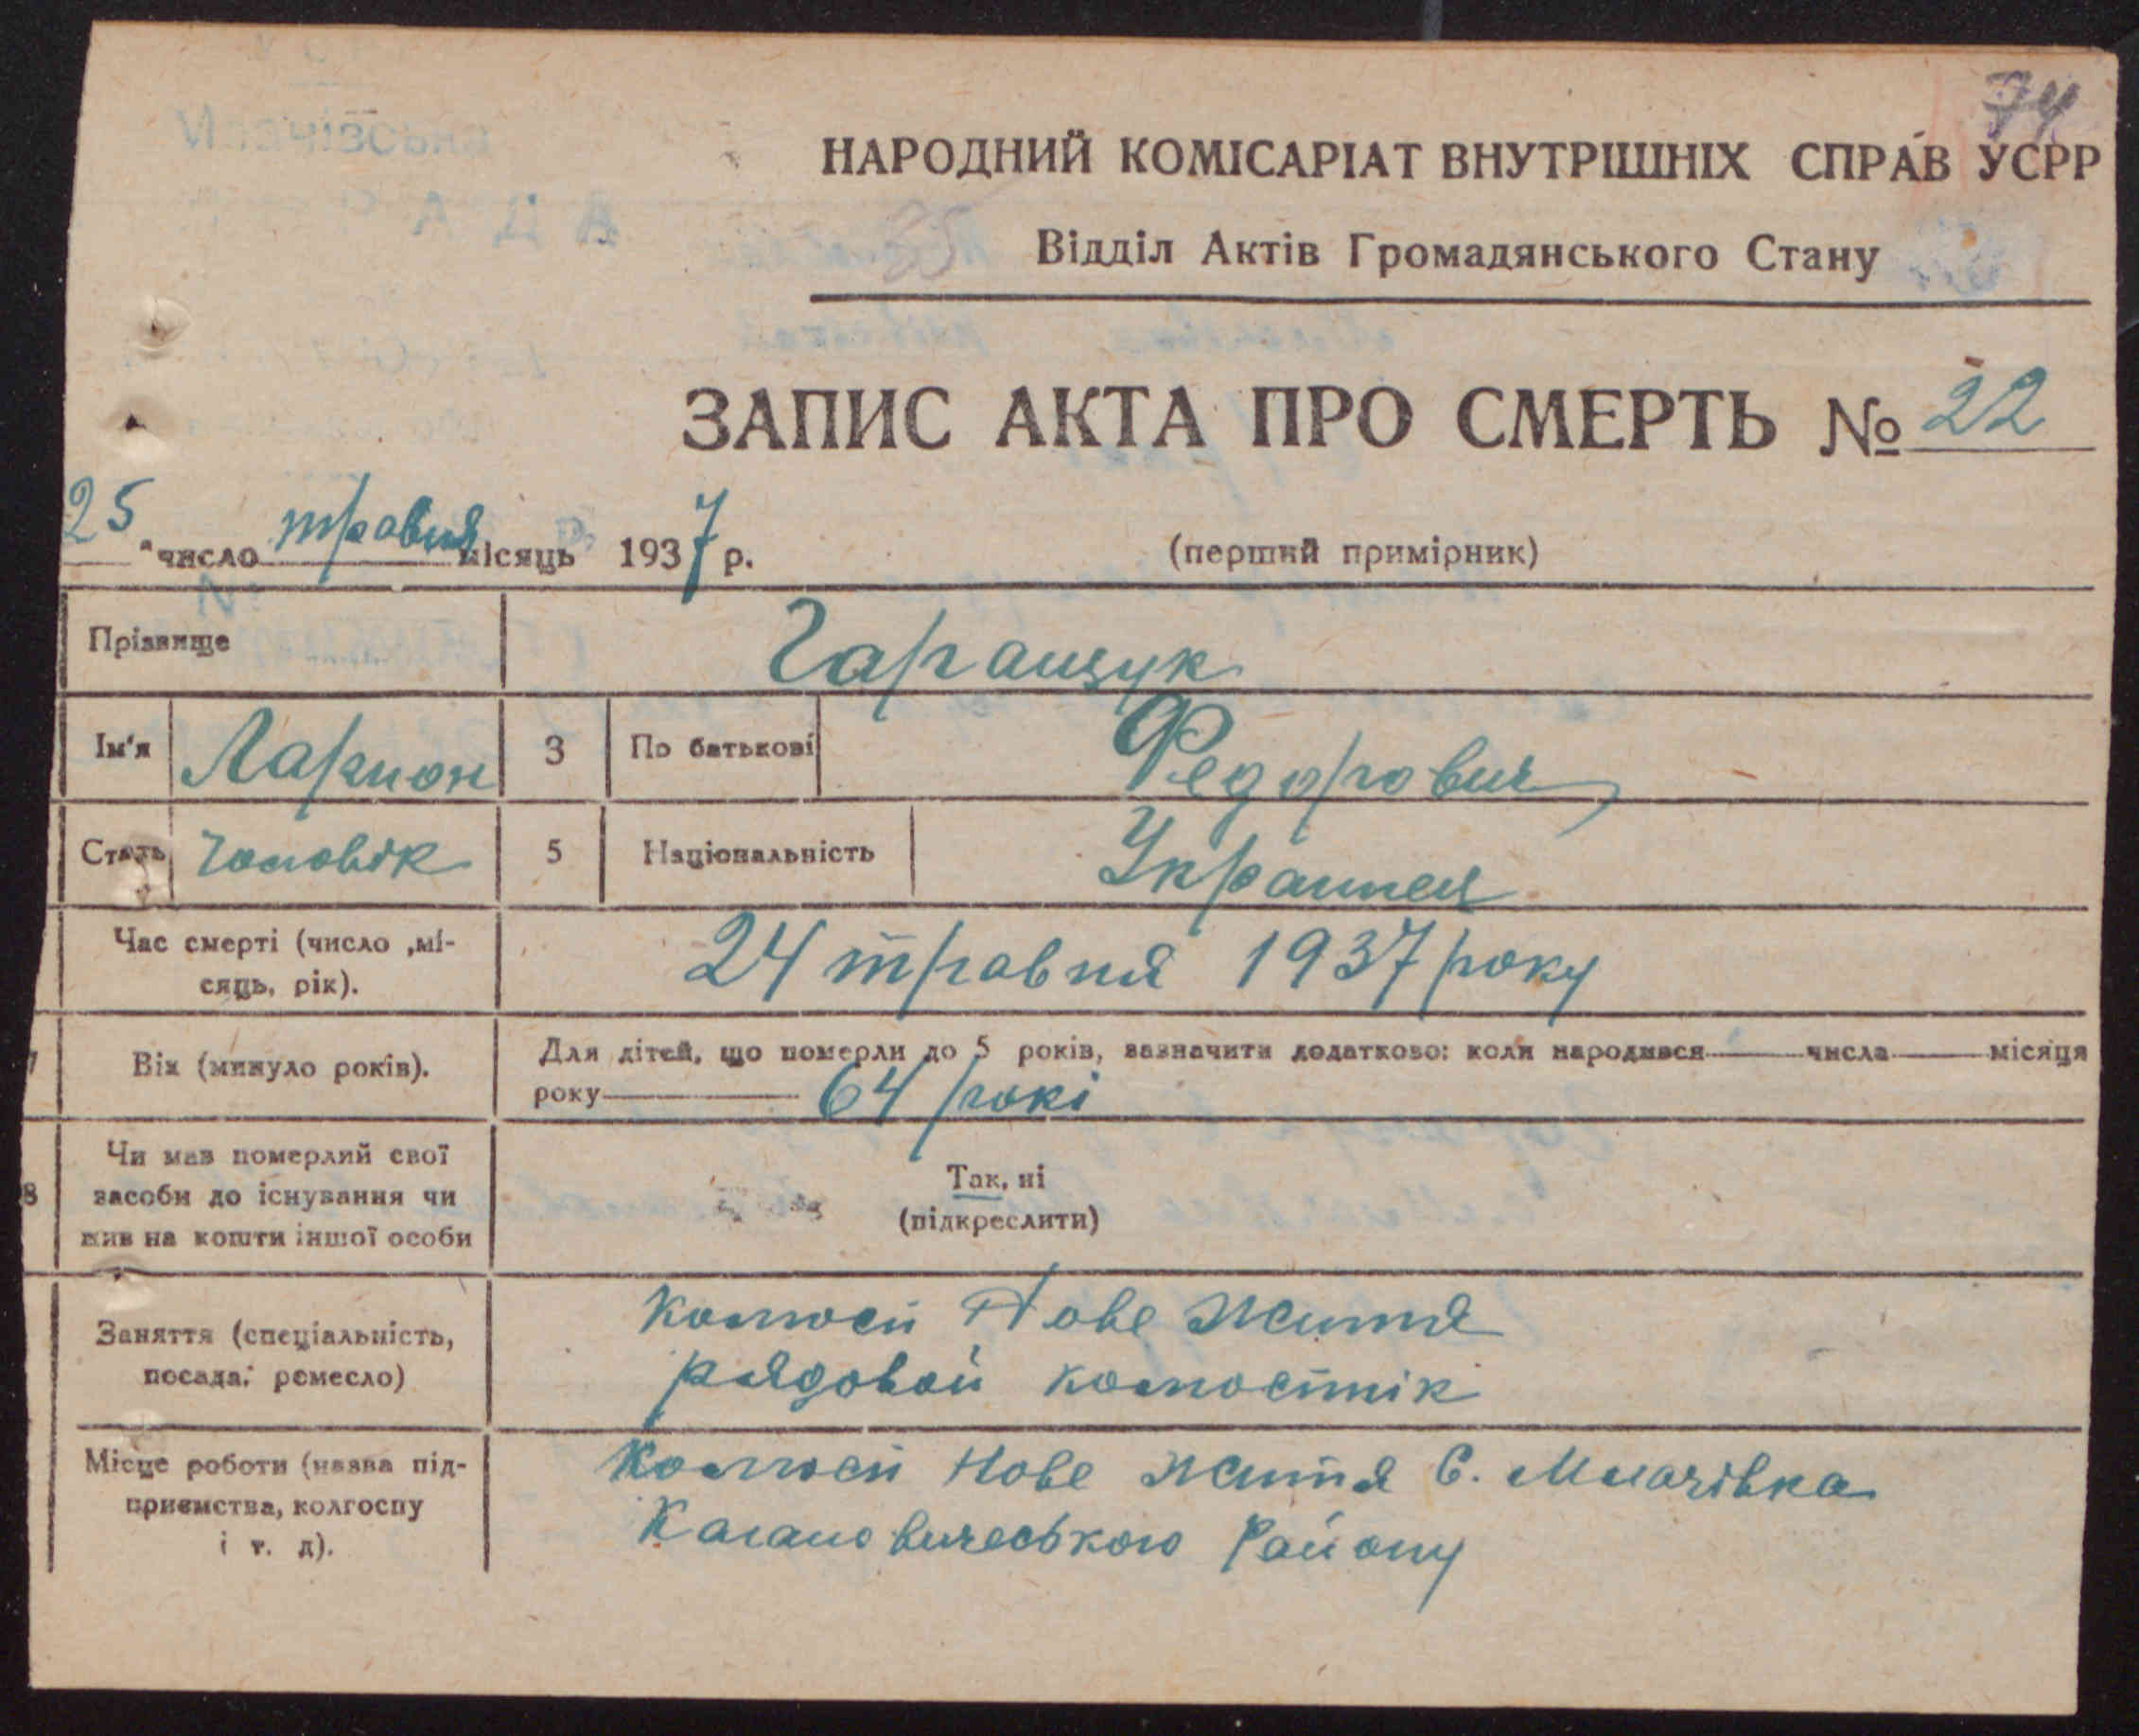 74
НАРОДНИЙ КОМІСАРІАТ ВНУТРІШНІХ СПРАВ УСРР
Відділ Актів Громадянського Стану
ЗАПИС АКТА ПРО СМЕРТЬ № 22
25 " число травня місяць 1937 р.
(перший примірник)
Прізвище Гаращук
Ім'я Ларион 3 По батькові Федорович
Стать Чоловік 5 Національність Украинец
Час смерті (число ,мі-
сяць, рік).
24 травня 1937 року
7 Вік (минуло років).
Для дітей, що померли до 5 років, зазначити додатково: коли народився числа місяця
року 64 рокі
8 Чи мав померлий свої
засоби до існування чи
жив на кошти іншої особи
Так, ні
(підкреслити)
Заняття (спеціальність,
посада, ремесло)
Колгосп Нове Життя
рядовой колгоспнік
Місце роботи (назва під-
приємства, колгоспу
і т. д).
Колгосп Нове Життя С. Млачівка
Кагановичеського Району